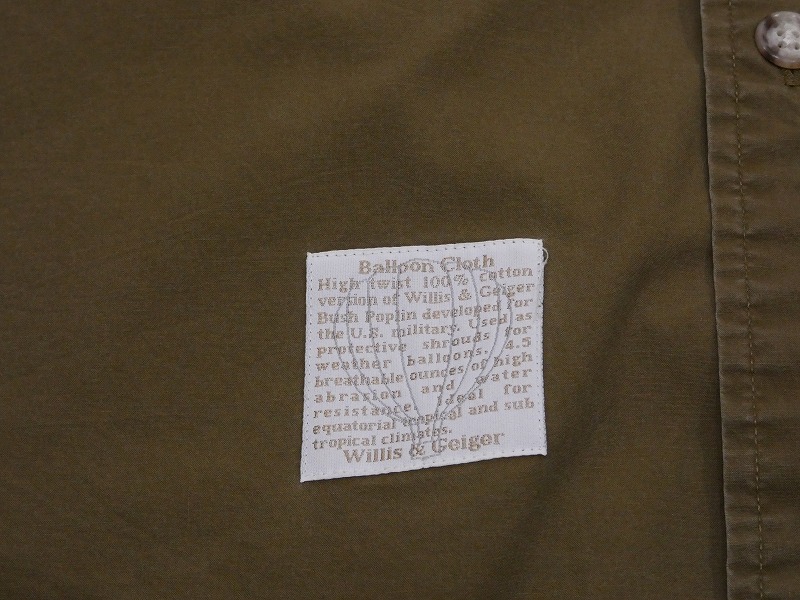 Balloon Cloth
High twist 100% cotton
version of Willis & Geiger
Bush Poplin developed for
the U.S. military. Used as
protective shrouds for
weather balloons. 4.5
breathable ounces of high
abrasion and water
resistance. Ideal for
equatorial tropical and sub
tropical climates.
Willis & Geiger